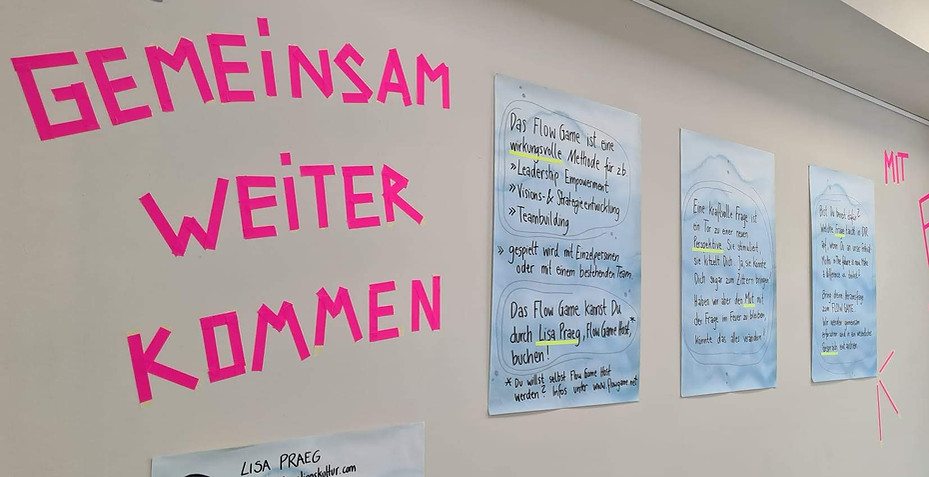 GEMEiNSAM
WEiTER
KOMMEN
Das Flow Game ist eine
wirkungsvolle Methode für z.b
» Leadership Empowerment
» Visions- & Strategieentwicklung
» Teambuilding
» gespielt wird mit Einzelpersonen
oder mit einem bestehenden Team
Das Flow Game kannst Du
durch Lisa Praeg, Flow Game Host,*
buchen!
* Du willst selbst Flow Game Host
werden? Infos unter www.flowgame.net
Eine kraftvolle Frage ist
ein Tor zu einer neuen
Perspektive. Sie stimuliert,
sie kitzelt Dich. Ja, sie könnte
Dich sogar zum Zittern bringen!
Haben wir aber den Mut mit
der Frage im Feuer zu bleiben,
könnte das alles verändern!
Bist Du bereit dazu?
Welche Frage taucht in DIR
auf, wenn Du an unser
Motto
Bring deine Herzensfrage
zum FLOW GAME.
Wir werden gemeinsam
erforschen und in ein
Gespräch eintauchen.
MIT
LISA PRAEG